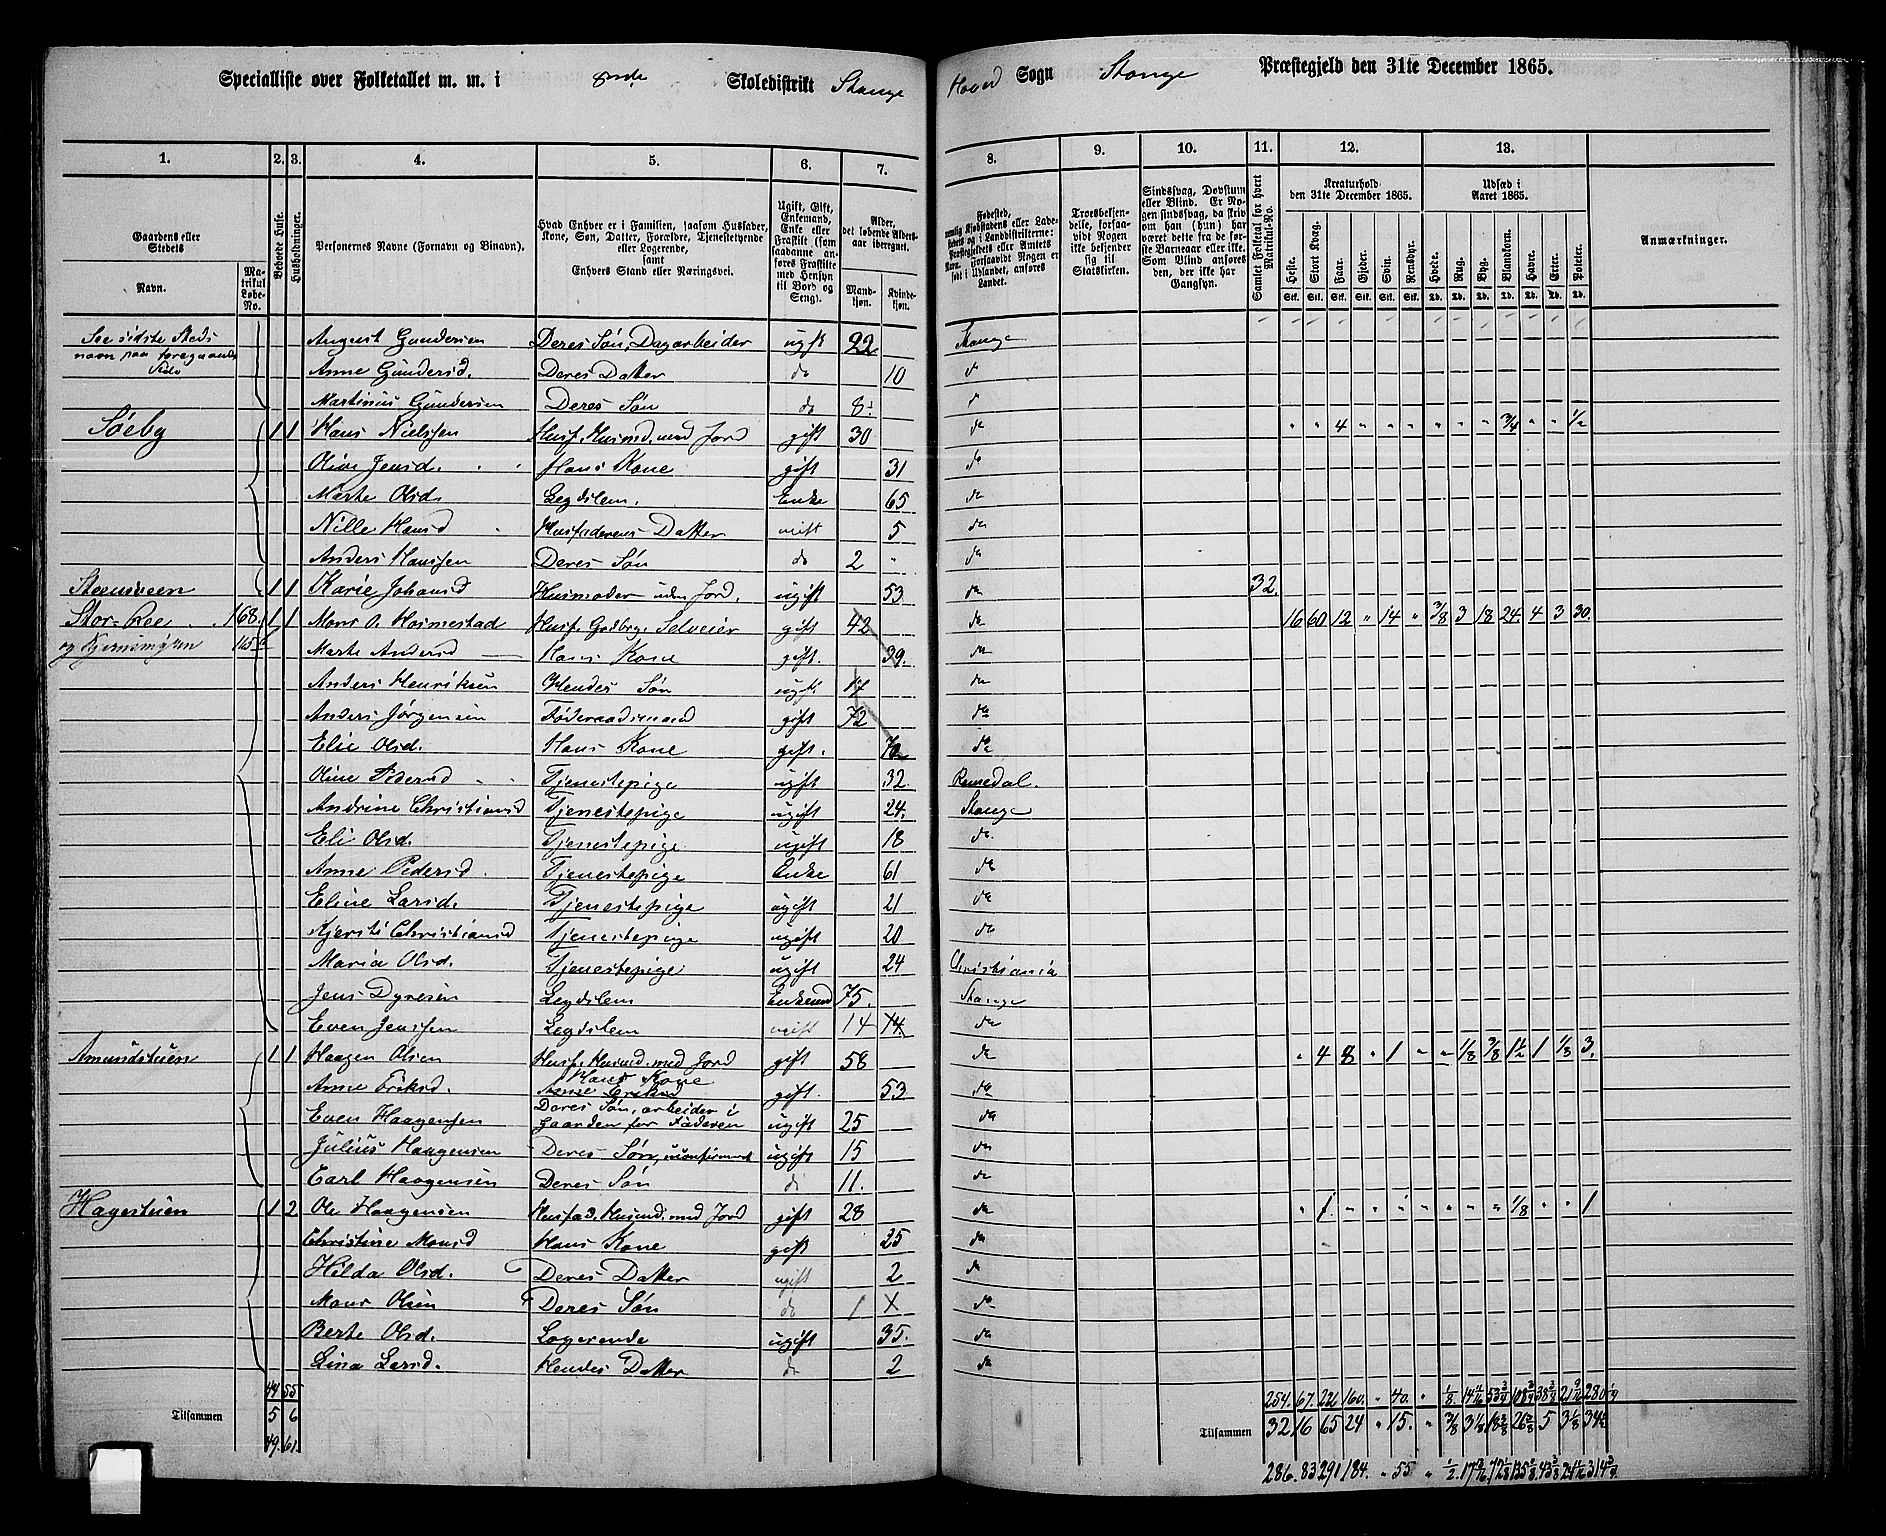 Specialliste over Folketallet m. m. i 8nde Skoledistrikt Stange Hoved Sogn Stange Præstegjeld den 31te December 1865.
1. 2. 3. 4. 5. 6. 7. 8. 9. 10. 11. 12. 13.
Gaardens eller Stedets
Navn.
Matrikul Løbe-No.
Beboede Huse.
Husholdninger.
Personernes Navne (Fornavn og Binavn).
Hvad Enhver er i Familien, saasom Husfader, Kone, Søn, Datter, Forældre, Tjenestetyende eller Logerende,
samt
Enhvers Stand eller Næringsvei.
Ugift, Gift, Enkemand, Enke eller Fraskilt (som saadanne anføres Fraskilte med Hensyn til Bord og Seng).
Alder, det løbende Aldersaar iberegnet.
Mandkjøn. Kvindekjøn.
Fødested, nemlig Kjøbstadens eller Ladestedets og i Landdistrikterne: Præstegjeldets eller Amtets Navn. Forsaavidt Nogen er født i Udlandet, anføres Landet.
Troesbekjendelse, forsaavidt Nogen ikke bekjender sig til Statskirken.
Sindssvag, Døvstum eller Blind. Er Nogen sindssvag, da skrives om han (hun) har været dette fra de første Barneaar eller ikke. Som Blind anføres den, der ikke har Gangsyn.
Samlet Folketal for hvert Matrikul-No.
Kreaturhold den 31te December 1865.
Heste. Stort Kvæg. Faar. Gjeder. Svin. Rensdyr.
Stk. Stk. Stk. Stk. Stk. Stk.
Udsæd i Aaret 1865.
Hvede. Rug. Byg. Blandkorn. Havre. Erter. Poteter.
Td. Td. Td. Td. Td. Td. Td.
Anmærkninger.
See sidste Steds August Gundersen Deres Søn, Dagarbeider ugift 22 Stange
navn paa foregaaende Side Anne Gundersd. Deres Datter do 10 do
Martinus Gundersen Deres Søn do 8 do
Søeby 1 1 Hans Nielssen Husf. Husmd. med Jord gift 30 do " " 4 " " " " " " 3/4 " " 1/2
Oline Jensd. Hans Kone gift 31 do
Marte Olsd. Legdslem. Enke 65 do
Nille Hansd Husfaderens Datter ugift 5 do
Anders Hanssen Deres Søn do 2 " do
Steensveen 1 1 Karie Johansd Husmoder uden Jord. ugift 53 do 32.
Stor-Ree 168. 1 1 Mons O. Holmestad Husf. Gaardbr. Selveier gift 42 do 16 60 12 " 14 " 3/8 3 18 24. 4 3 30.
og Kjernsmoen 165 Marte Andersd Hans Kone gift. 39. do
Anders Henriksen Hendes Søn ugift 17 do
Anders Jørgensen Føderaadsmand gift 72 do
Elie Olsd. Hans Kone gift. 70 do
Oline Pedersd Tjenestepige ugift 32 Romedal.
Andrine Christiansd Tjenestepige ugift 24. Stange
Eli Olsd. Tjenestepige ugift 18 do
Anne Pedersd Tjenestepige Enke 61 do
Eline Larsd. Tjenestepige ugift 21 do
Kjersti Christiansd Tjenestepige ugift 20 do
Maria Olsd. Tjenestepige ugift 24 Christiania
Jens Dyresen Legdslem Enkemd 75. Stange
Even Jenssen Legdslem ugift 14 14 do
Amundstuen 1 1 Haagen Olsen Husf. Husmd. med Jord gift 58 do " 4 8 " 1 " " 1/8 3/8 1 1/2 1 1/8 3.
Anne Eriksd. Hans Kone gift. 53 do
Even Haagensen Deres Søn, arbeider i
Gaarden for Faderen ugift 25 do
Julius Haagensen Deres Søn, ukonfirmert ugift 15 do
Carl Haagensen Deres Søn do 11. do
Hagestuen 1 2 Ole Haagensen Husfad. Husmd. med Jord gift 28 do " 1 " " " " " " " 1/8 " " 1
Christine Monsd Hans Kone gift 25 do
Hilda Olsd. Deres Datter ugift 2 do
Mons Olsen Deres Søn do 1 do
Berte Olsd. Logerende ugift 35. do
Lina Larsd. Hendes Datter do 2 do
44 55 254. 67. 226 160. " 40. "
Tilsammen 5 6 Tilsammen 32 16 65 24 " 15. " 3/8 3 1/8 18 3/8 26 3/8 5 3 1/8 34 1/2
49. 61. 286. 83 291 184. " 55 " 1/2